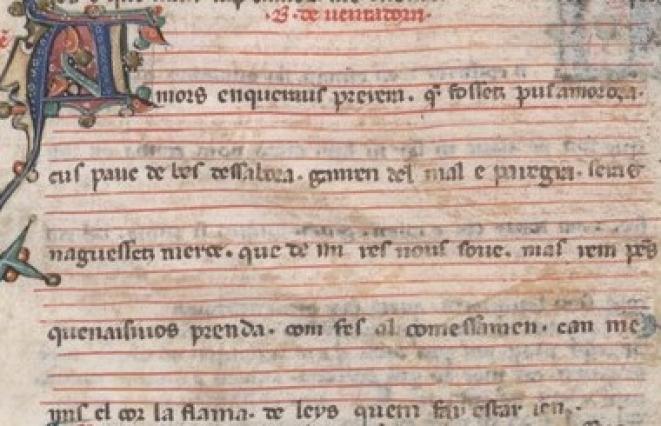 .B. de uentadorn.
Amors enqueraus preiera. q̃ fossetz pus amoroza.
cus pauc de bes dessabora. ganren del mal e
naguessetz merce. que de mi res nous soue. mas iem pes
quenaisiuos prenda. com fes al comessamen. can me
yns el cor la flama. de leys quem fay estar